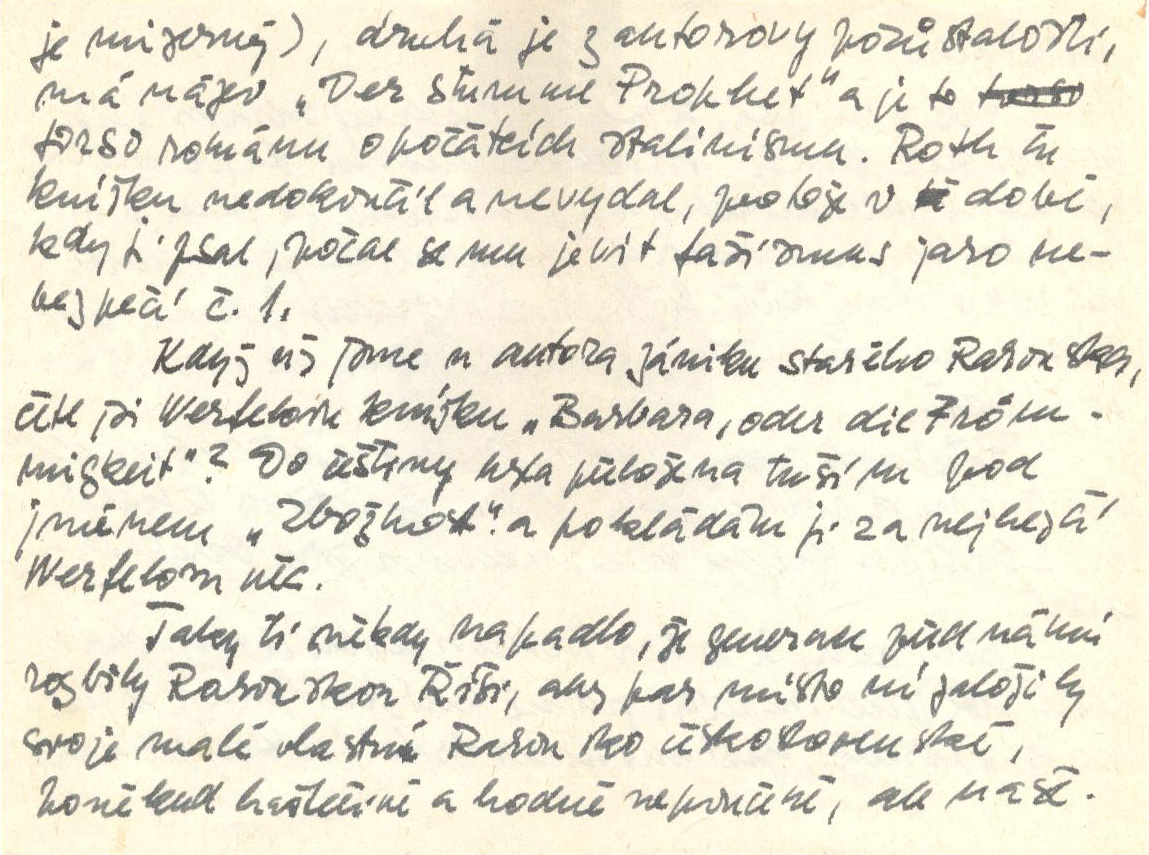 je mizerný), druhá je z autorovy pozůstalosti,
má název „Der stumme Prophet“ a je to torso
torso románu o počátcích stalinismu. Roth tu
knížku nedokončil a nevydal, protože v té době,
kdy ji psal, počal se mu jevit fašismus jako ne-
bezpečí č. 1.
Když už jsme u autora zániku starého Rakouska,
četl jsi Werfelovu knížku „Barbara, oder die Fröm-
migkeit“? Do češtiny byla přeložena tuším pod
jménem „Zbožnost“ a pokládám ji za nejhezčí
Werfelovu věc.
Taky ti někdy napadlo, že generace před námi
rozbily Rakouskou Říši, aby pak místo ní založily
svoje malé vlastní Rakousko československé,
poněkud hašteřivé a hodně nepoučené, ale naše.